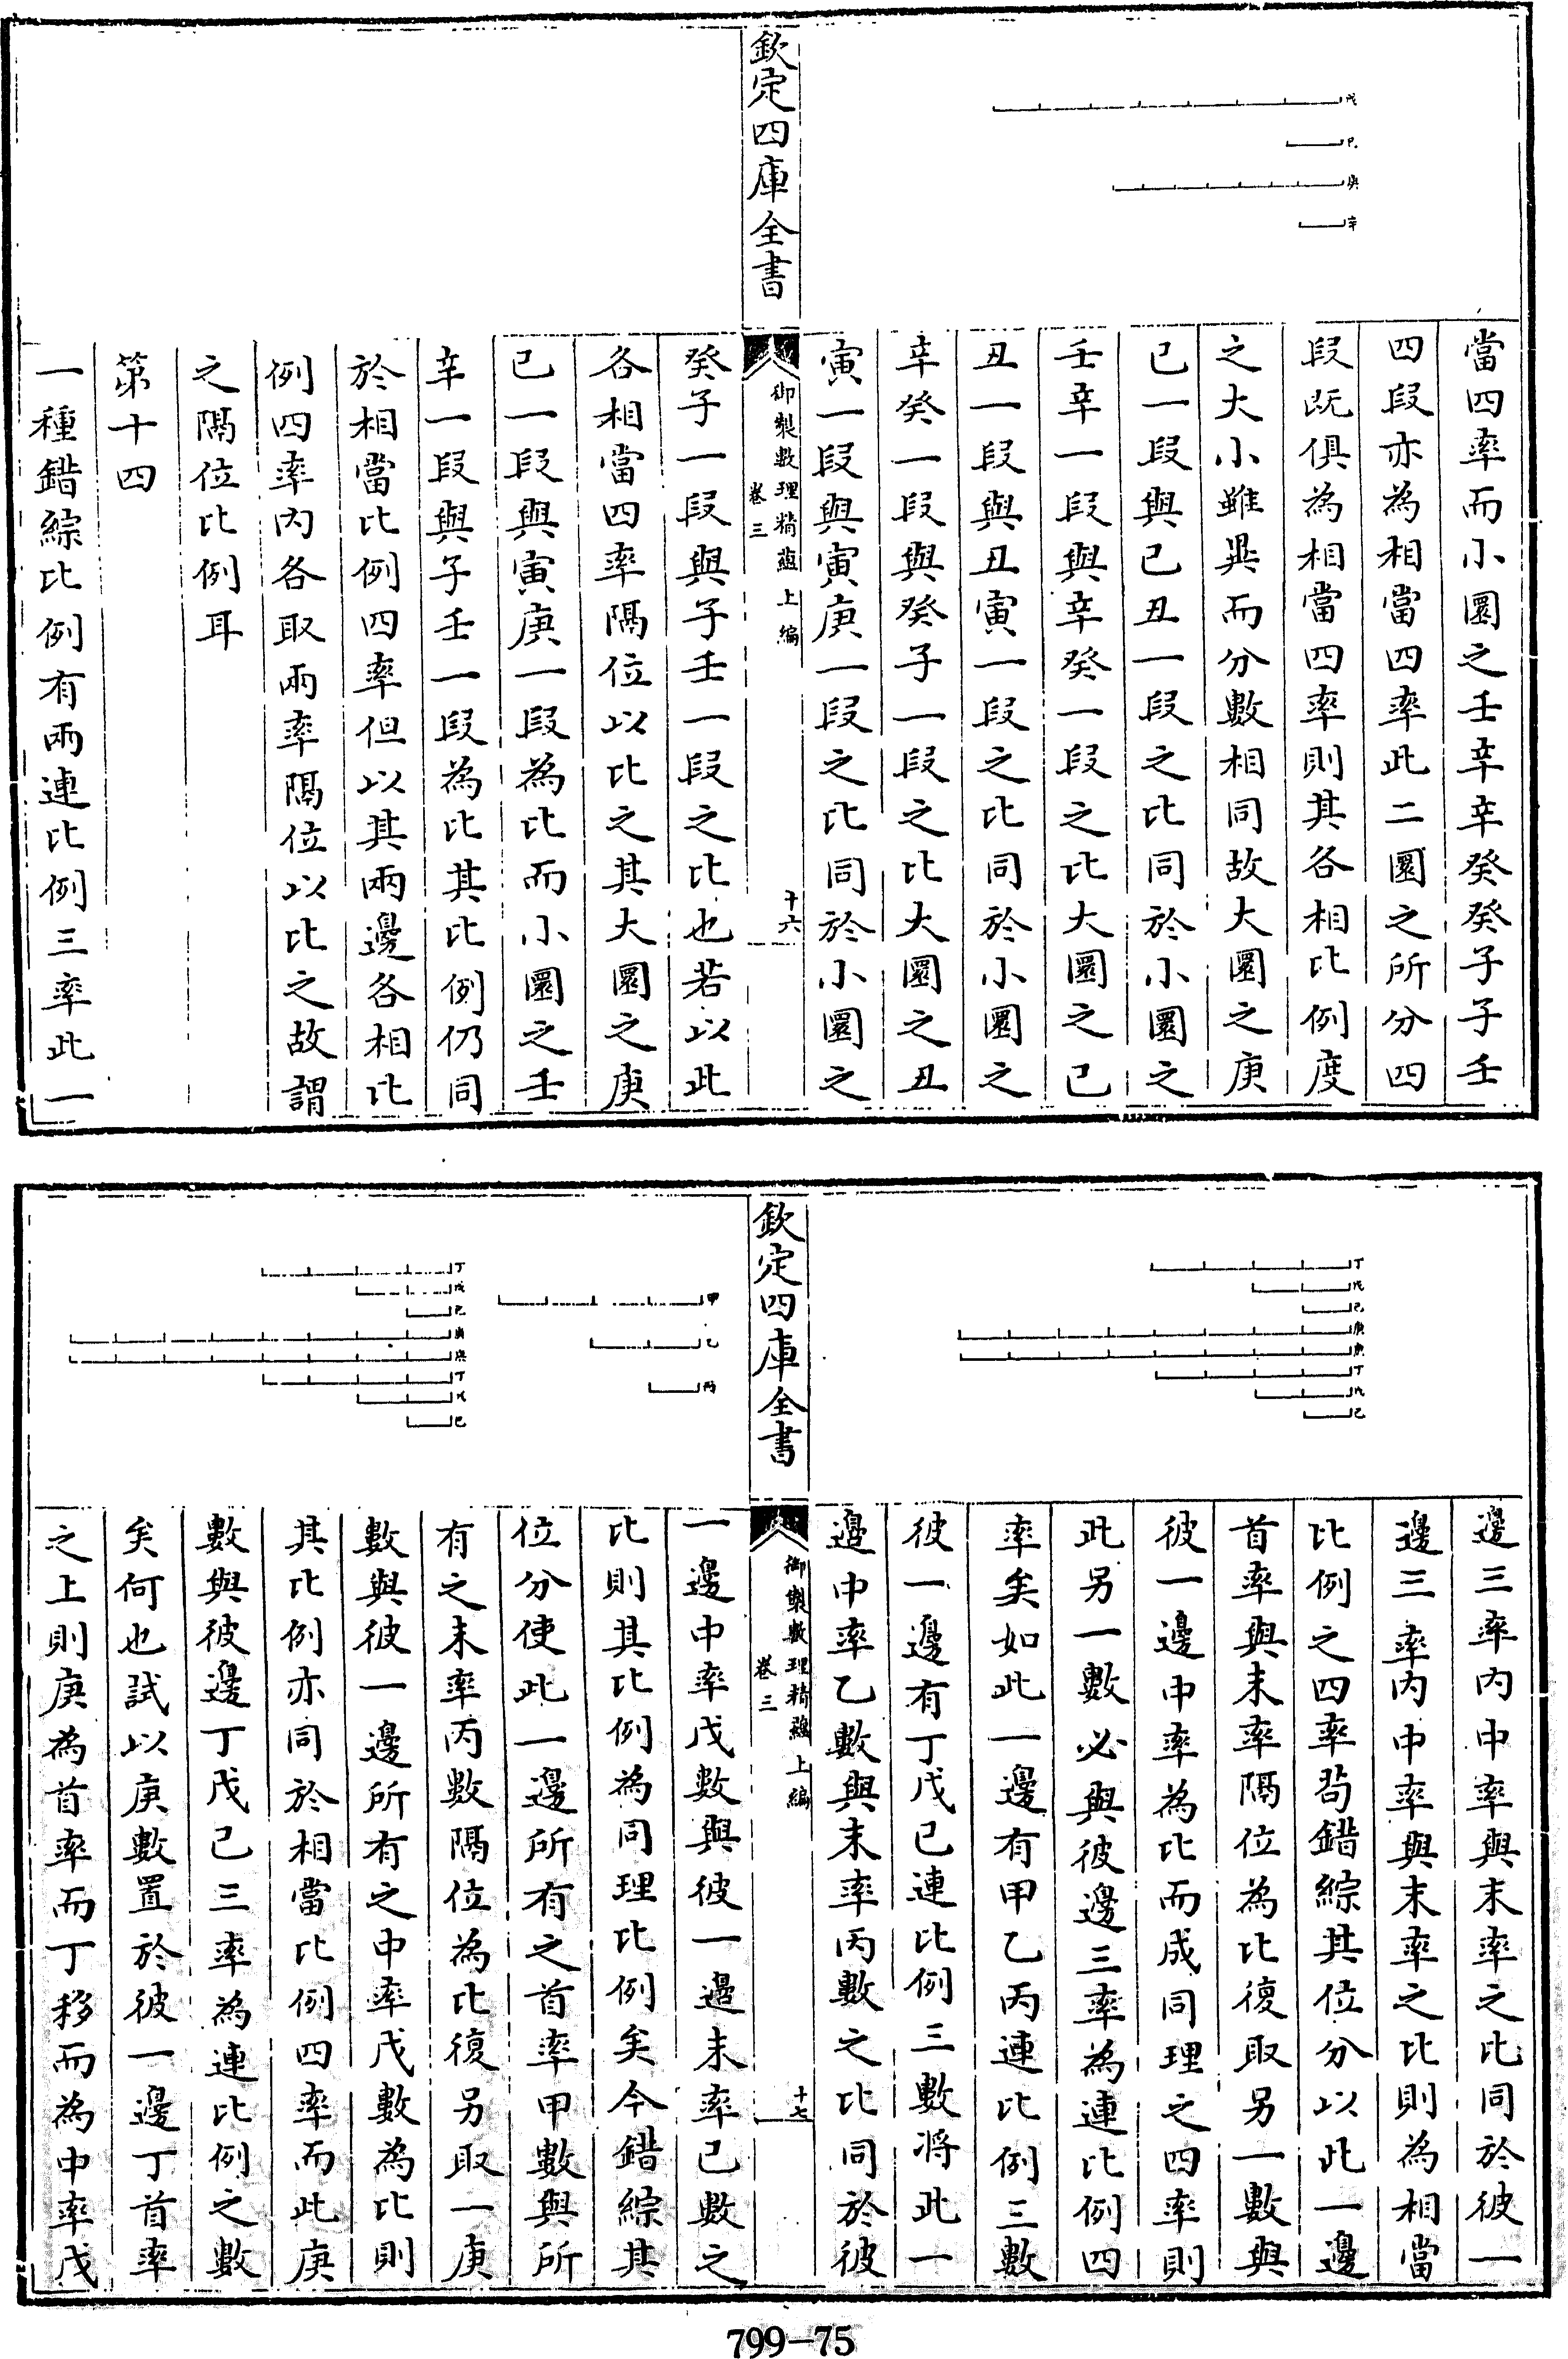 戊
己
庚
辛
當四率而小圜之壬辛辛癸癸子子壬
四段亦為相當四率此二圜之所分四
段既俱為相當四率則其各相比例度
之大小雖異而分數相同故大圜之庚
己一段與己丑一段之比同於小圜之
壬辛一段與辛癸一段之比大圜之己
丑一段與丑寅一段之比同於小圜之
辛癸一段與癸子一段之比大圜之丑
寅一段與寅庚一段之比同於小圜之
欽定四庫全書
御製數理精蘊上編
卷三
十六
癸子一段與子壬一段之比也若以此
各相當四率隔位以比之其大圜之庚
己一段與寅庚一段為比而小圜之壬
辛一段與子壬一段為比其比例仍同
於相當比例四率但以其兩邊各相比
例四率內各取兩率隔位以比之故謂
之隔位比例耳
第十四
一種錯綜比例有兩連比例三率此一
丁
戊
己
庚
庚
丁
戊
己
邊三率內中率與末率之比同於彼一
邊三率內中率與末率之比則為相當
比例之四率茍錯綜其位分以此一邊
首率與末率隔位為比復取另一數與
彼一邊中率為比而成同理之四率則
此另一數必與彼邊三率為連比例四
率矣如此一邊有甲乙丙連比例三數
彼一邊有丁戊己連比例三數將此一
邊中率乙數與末率丙數之比同於彼
欽定四庫全書
御製數理精蘊上編
卷三
十七
甲
乙
丙
丁
戊
己
庚
庚
丁
戊
己
一邊中率戊數與彼一邊末率己數之
比則其比例為同理比例矣今錯綜其
位分使此一邊所有之首率甲數與所
有之末率丙數隔位為比復另取一庚
數與彼一邊所有之中率戊數為比則
其比例亦同於相當比例四率而此庚
數與彼邊丁戊己三率為連比例之數
矣何也試以庚數置於彼一邊丁首率
之上則庚為首率而丁移而為中率戊
799-75